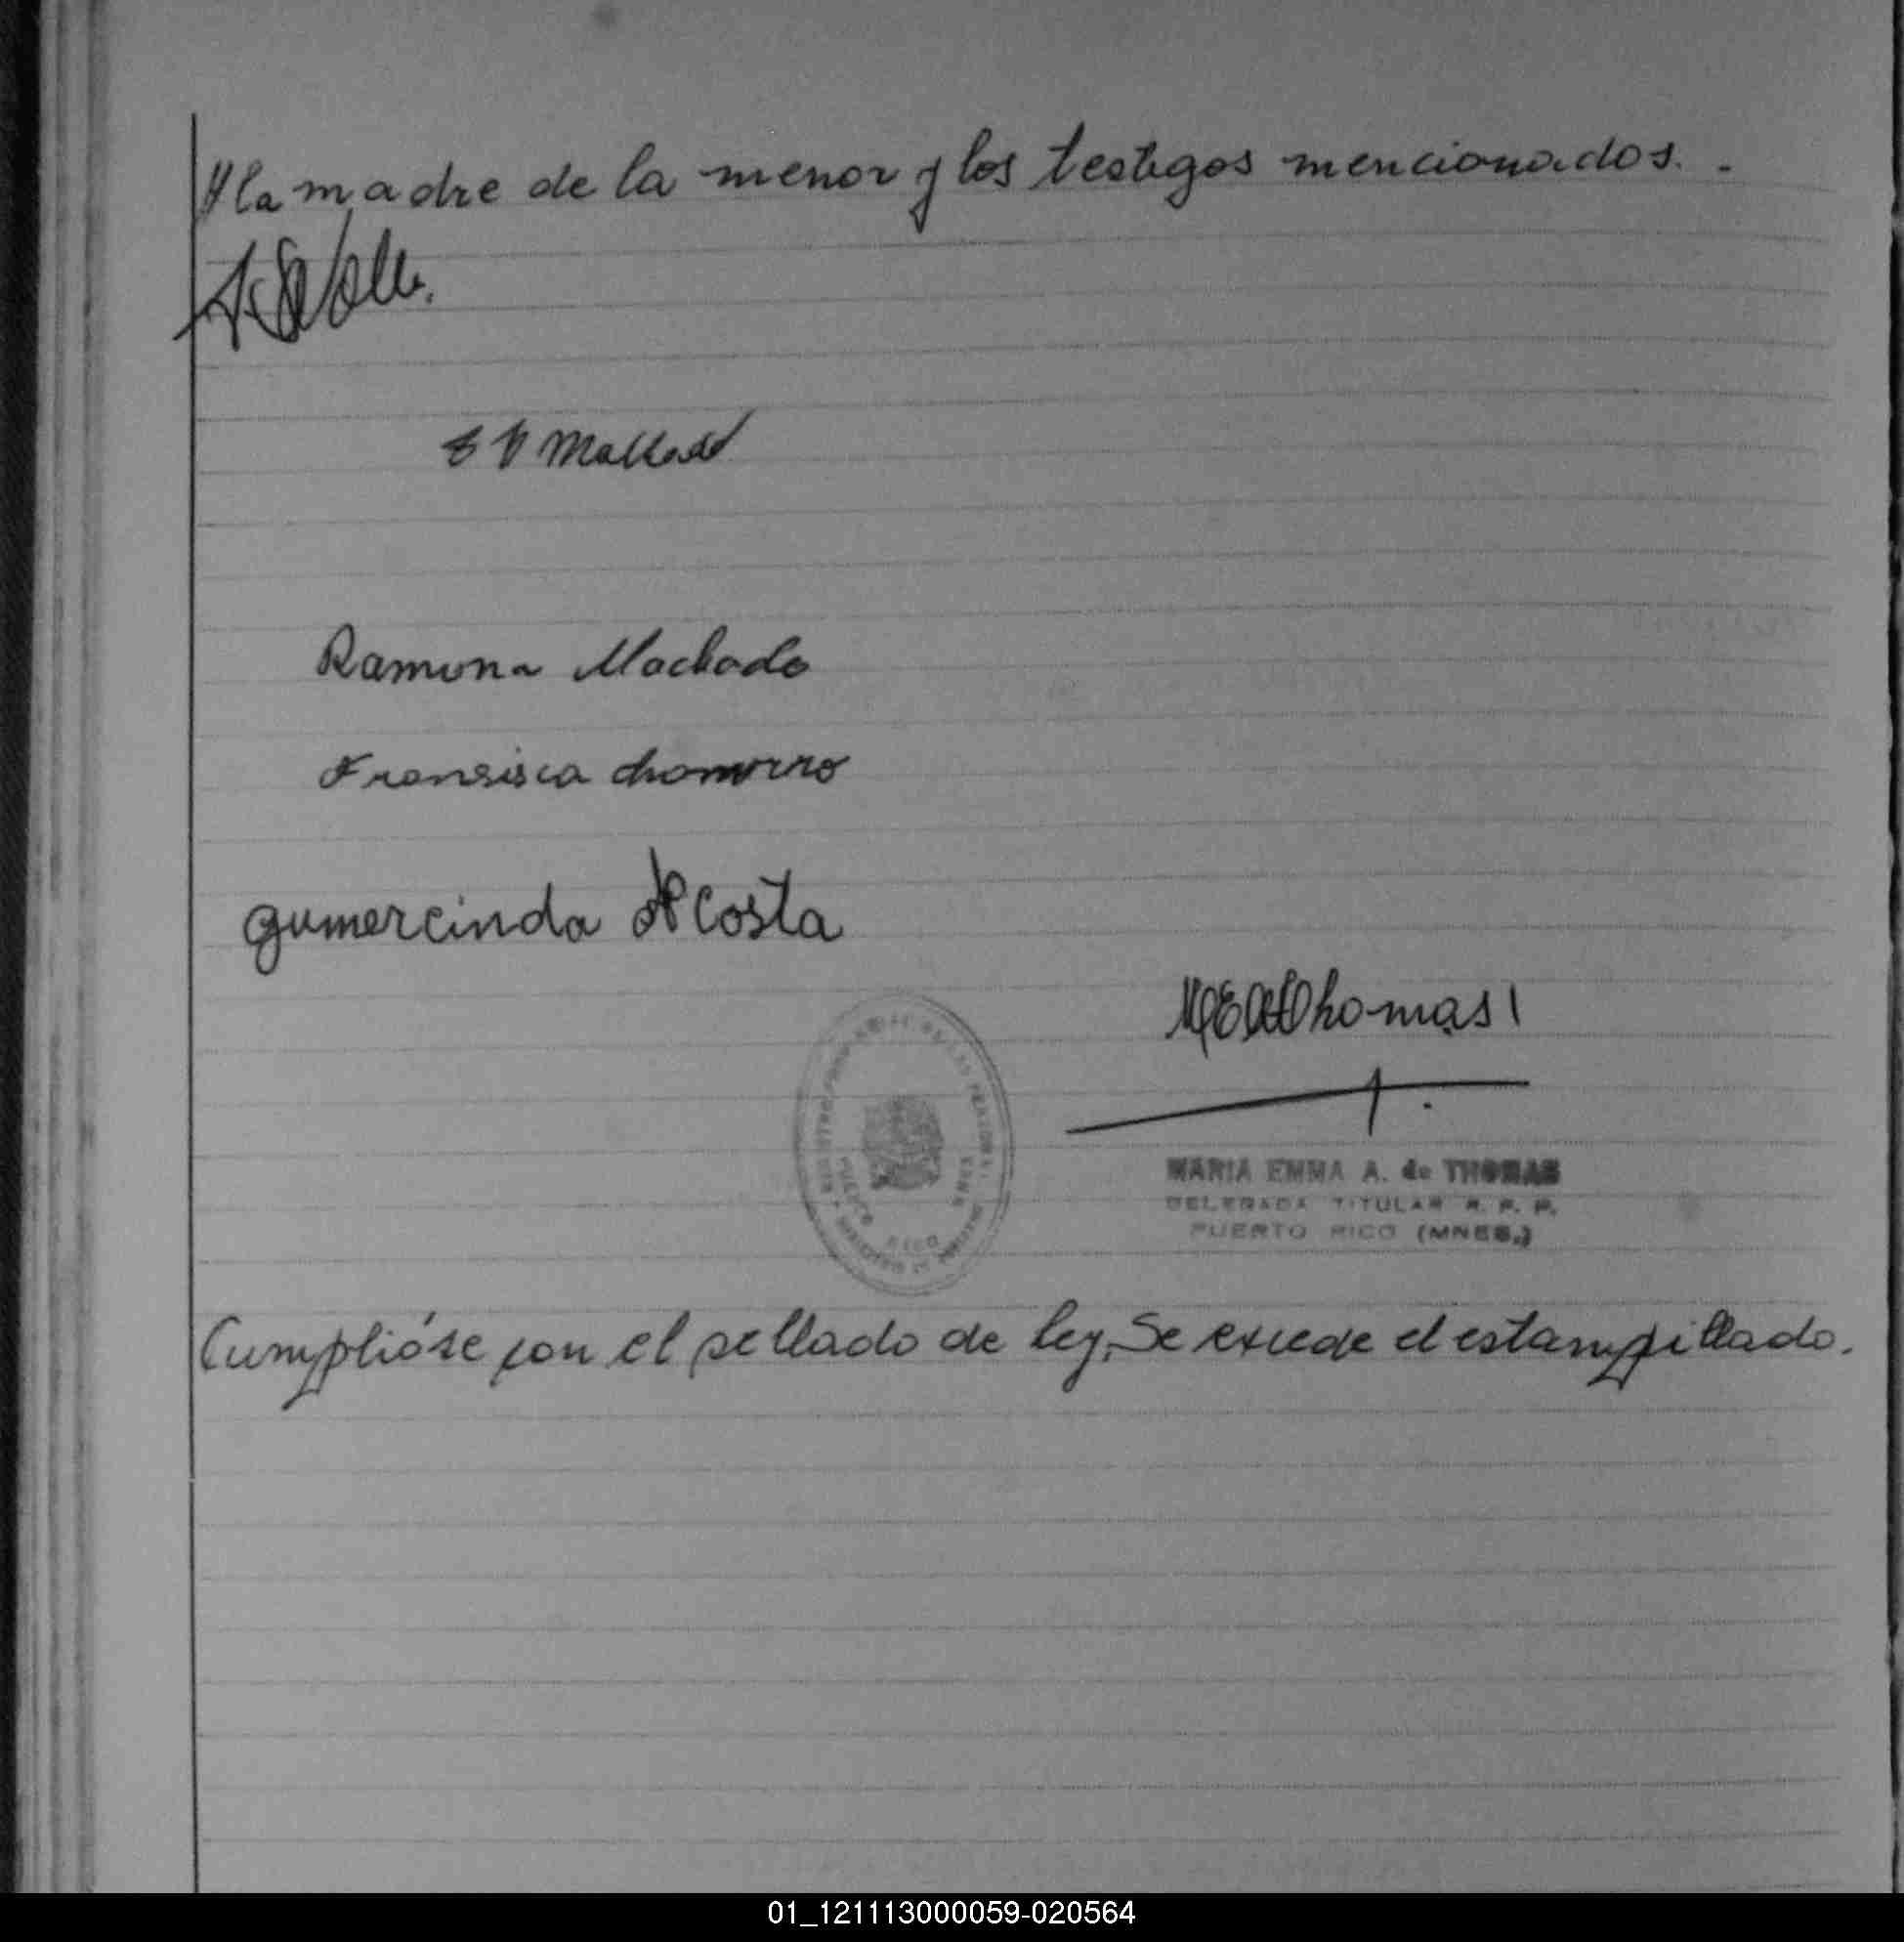 y la madre de la menor y los testigos mencionados. -
Ramona Machado
Fransisca chamorro
gumercinda Acosta
MEAThomas
MARIA EMMA A. de THOMAS
DELEGADA TITULAR R. P. P.
PUERTO RICO (MNES.)
PUERTO RICO
Cumplióse con el sellado de ley. Se excede el estampillado.
01_121113000059-020564